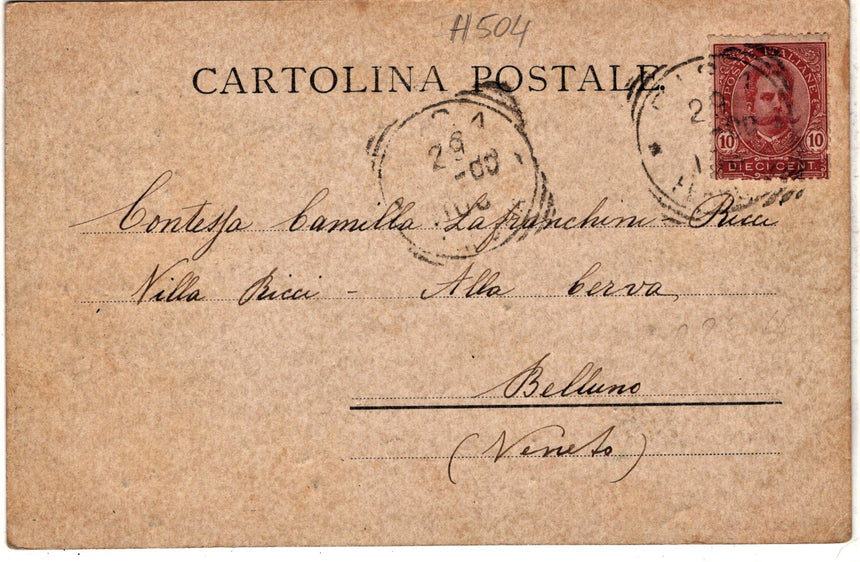 H504
CARTOLINA POSTALE.
POSTE ITALIANE
10 10
DIECI CENT.
29
1
26
-00
Contessa Camilla Lafranchini - Ricci
Villa Ricci - Alla Cerva
Belluno
(Veneto)